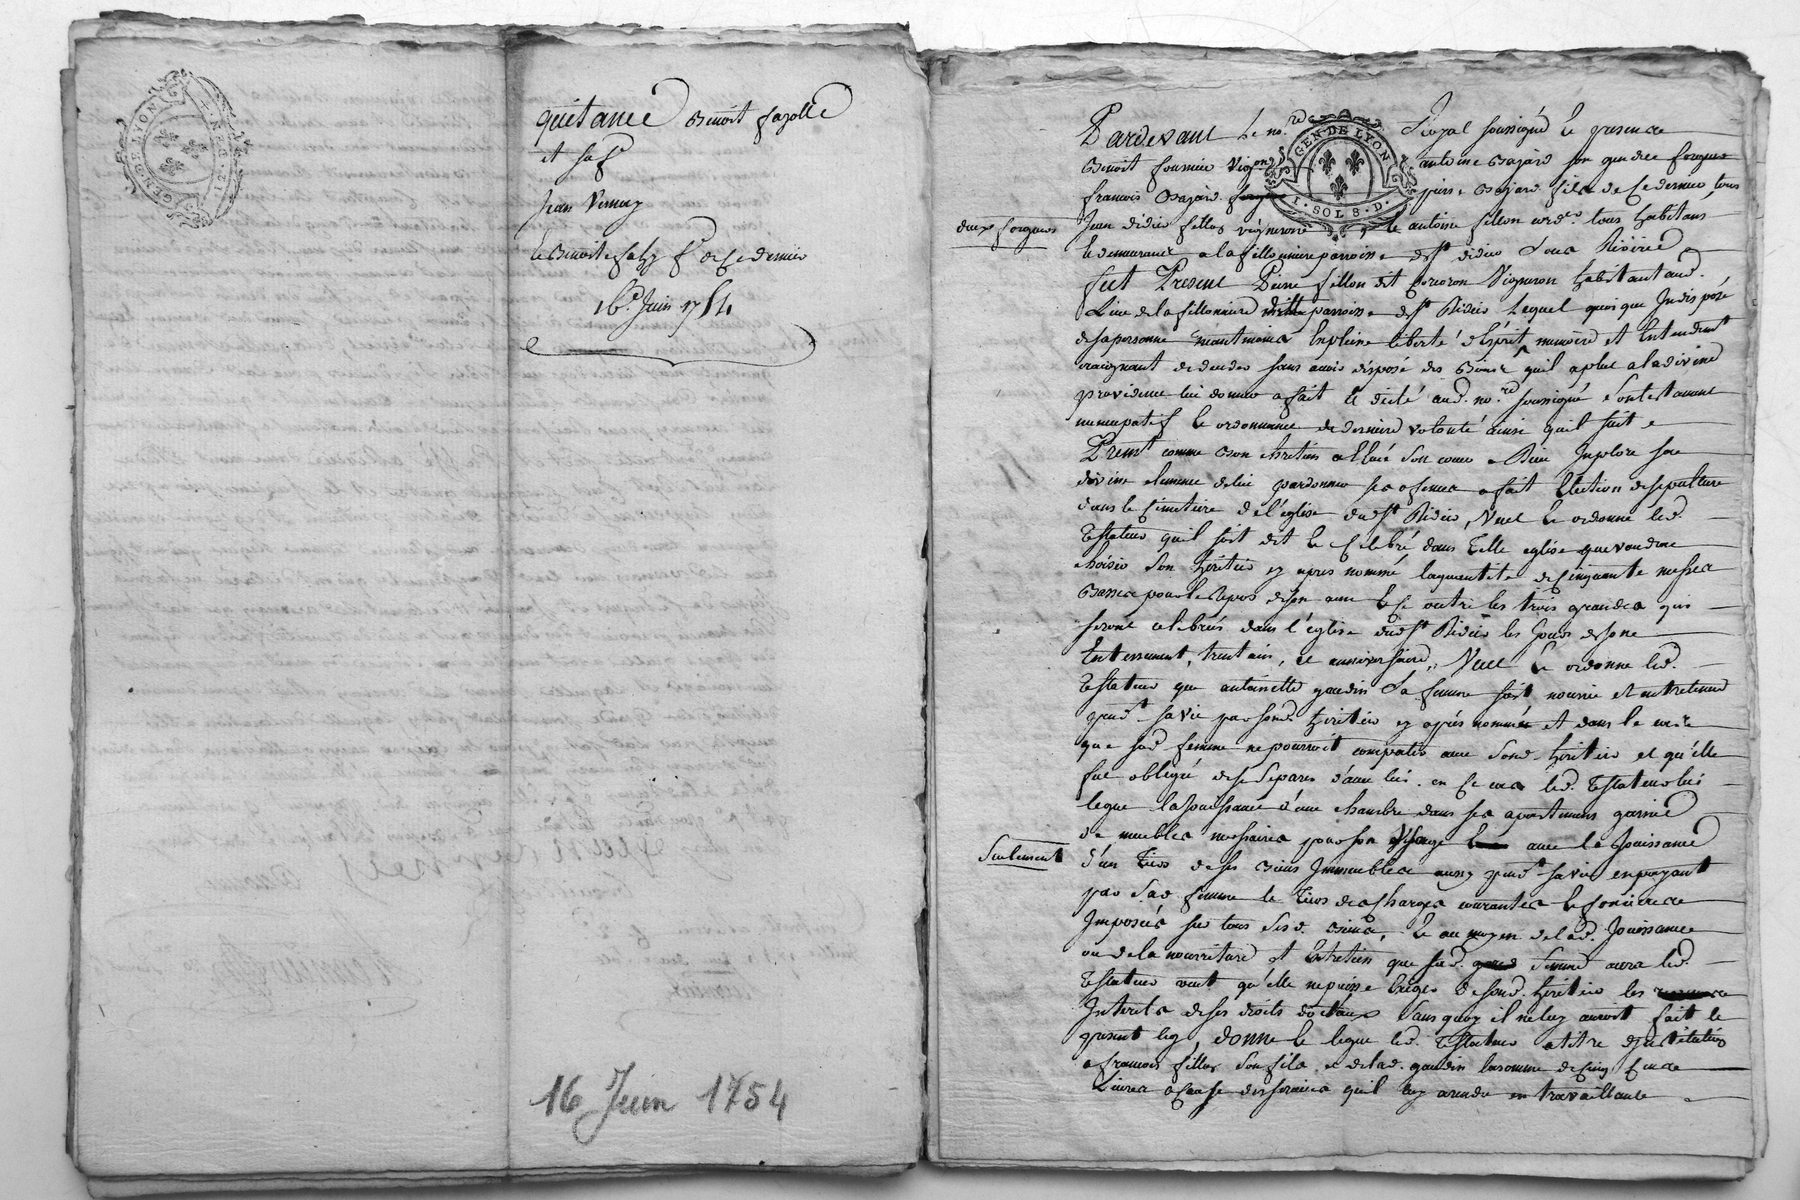 GEN. DE LYON
I. SOL 8. D.
quitance Benoit fayolle
et sa f
Jean Vernay
16e Juin 1754
16 Juin 1754
GEN. DE LYON
I. SOL 8. D.
Pardevant le no.re Royal soussigné et presence
Benoit fournier vigon antoine Bajard son gendre forgeur
francois Bajard pierre Bajard fils de ce dernier, tous
deux forgeurs
Jean didier fillon vigneron et antoine fillon cord.er tous habitans
et demeurant a la fillonniere parroisse de St didier sous Riviere
fut Present Pierre fillon dit Vigneron habitant aud.
Lieu de la fillonniere parroisse de St Didier Lequel quoique Indisposé
de sa personne neantmoins En pleine liberté d'Esprit memoire et Entendement
craignant de deceder sans avoir disposé des Biens quil a plut a la divine
providence lui donner a fait et dicté aud. no.re soussigné son testament
nuncupatif et ordonnance de derniere volonté ainsi quil suit
Premt comme bon chretien a Elevé son coeur a Dieu Implore sa
divine clemence de lui pardonner ses ofences a fait Election de sepulture
dans le Cimetiere de l'église dud St Didier, Veut et ordonne led.
Testateur quil soit dit et Celebré dans telle eglise que voudra
choisir son heritier cy apres nommé la quantité de Cinquante messes
Basses pour le Repos de son ame et ce outre les trois grandes qui
seront celebrées dans l'église dud St Didier les Jours de son
Enterrement, trentain, et anniversaire, Veut et ordonne led.
Testateur que antoinette gaudin sa femme soit nourrie et entretenue
pend.t sa vie par sond. heritier cy après nommé et dans le cas
que sad. femme ne pourroit compatir avec sond. heritier et qu'elle
fut obligée de se separer d'avec lui en ce cas led. Testateur lui
legue la Jouissance d'une chambre dans ses apartemens garnie
de meubles nessaires pour son Usage avec la Jouissance
seulement
d'un tiers de ses Biens Immeubles aussy pend.t sa vie en payant
par sad. femme le tiers des charges courantes et foncieres
Imposées sur tous sesd. Biens, et au moyen de lad. Jouissance
ou de la nourriture et Entretien que sad. femme aura led.
Testateur veut qu'elle ne puisse Exiger de sond. heritier les
Interets de ses droits dotaux sans quoy il ne luy auroit fait le
present leg, donne et legue led. Testateur a titre d'institution
a francois fillon son fils et de lad. gaudin la somme de Cinq Cent
Livres a Cause des services quil luy a rendu en travaillant